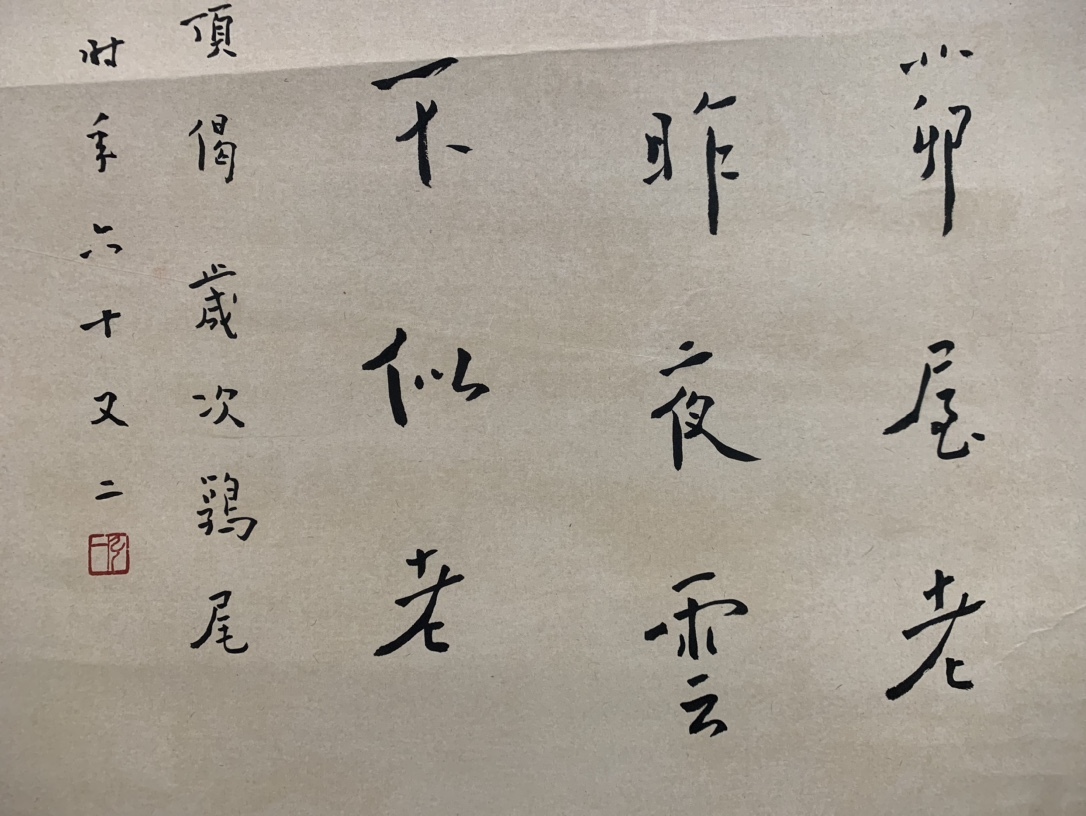 茆屋老
昨夜雲
不似老
頂偈歲次鶉尾
時年六十又二